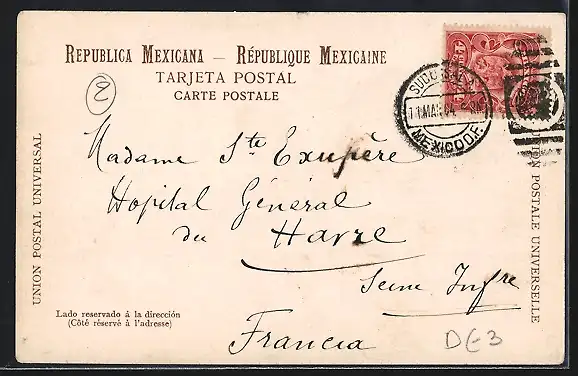 REPUBLICA MEXICANA — RÉPUBLIQUE MEXICAINE
TARJETA POSTAL
CARTE POSTALE
2
MEXICO D.F.
UNION POSTAL UNIVERSAL
UNION POSTALE UNIVERSELLE
Madame Ste Exupère
Hopital Général
du Havre
Seine Infre
Francia
Lado reservado á la dirección
(Côté réservé à l'adresse)